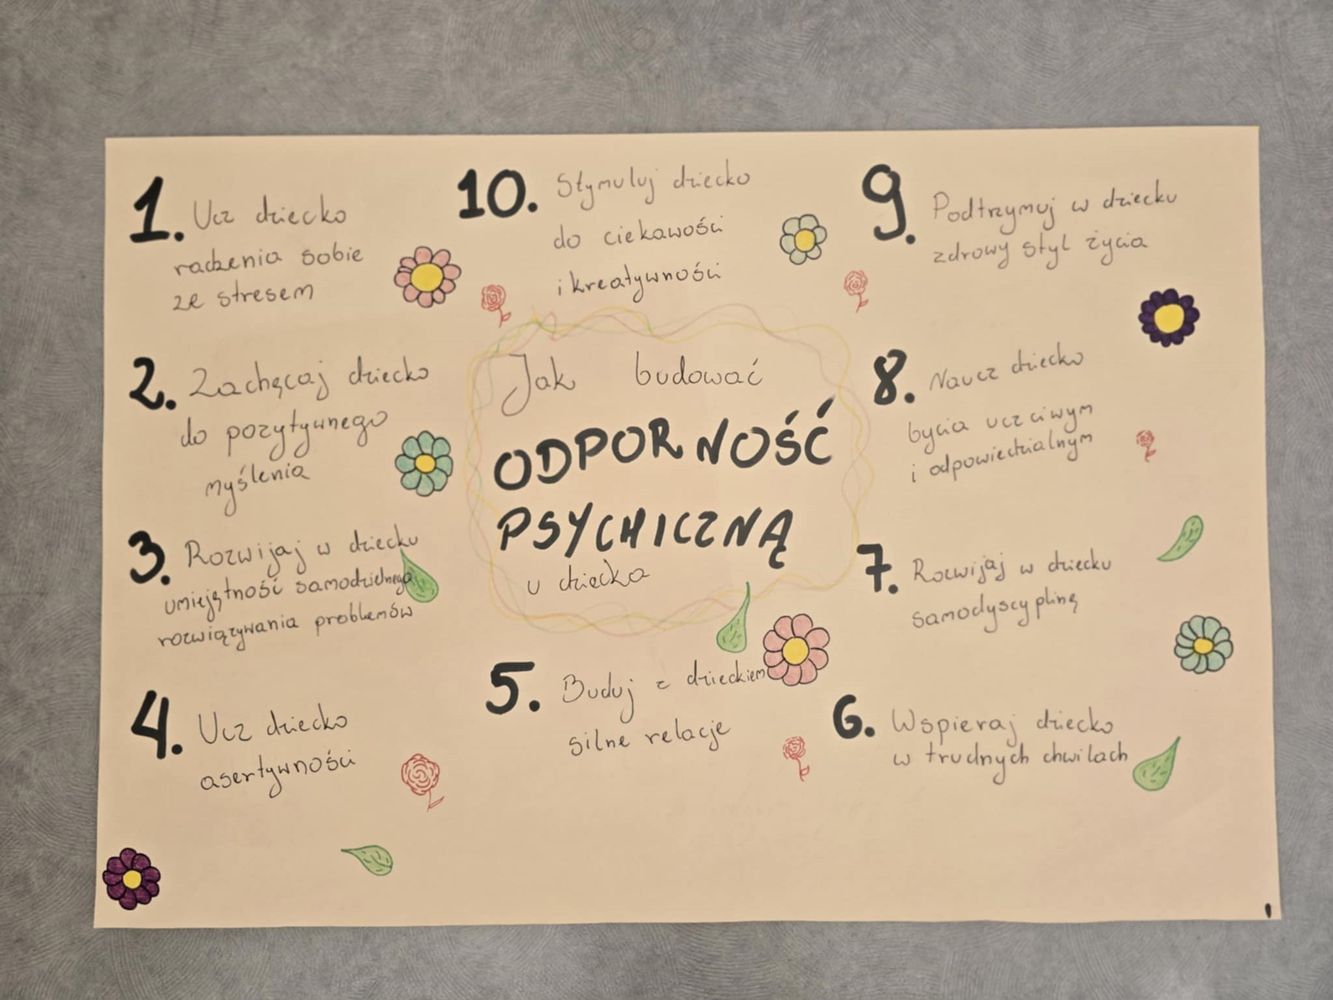 Jak budować
ODPORNOŚĆ
PSYCHICZNĄ
u dziecka
1. Ucz dziecko
radzenia sobie
ze stresem
2. Zachęcaj dziecko
do pozytywnego
myślenia
3. Rozwijaj w dziecku
umiejętność samodzielnego
rozwiązywania problemów
4. Ucz dziecko
asertywności
5. Buduj z dzieckiem
silne relacje
6. Wspieraj dziecko
w trudnych chwilach
7. Rozwijaj w dziecku
samodyscyplinę
8. Naucz dziecko
bycia uczciwym
i odpowiedzialnym
9. Podtrzymuj w dziecku
zdrowy styl życia
10. Stymuluj dziecko
do ciekawości
i kreatywności